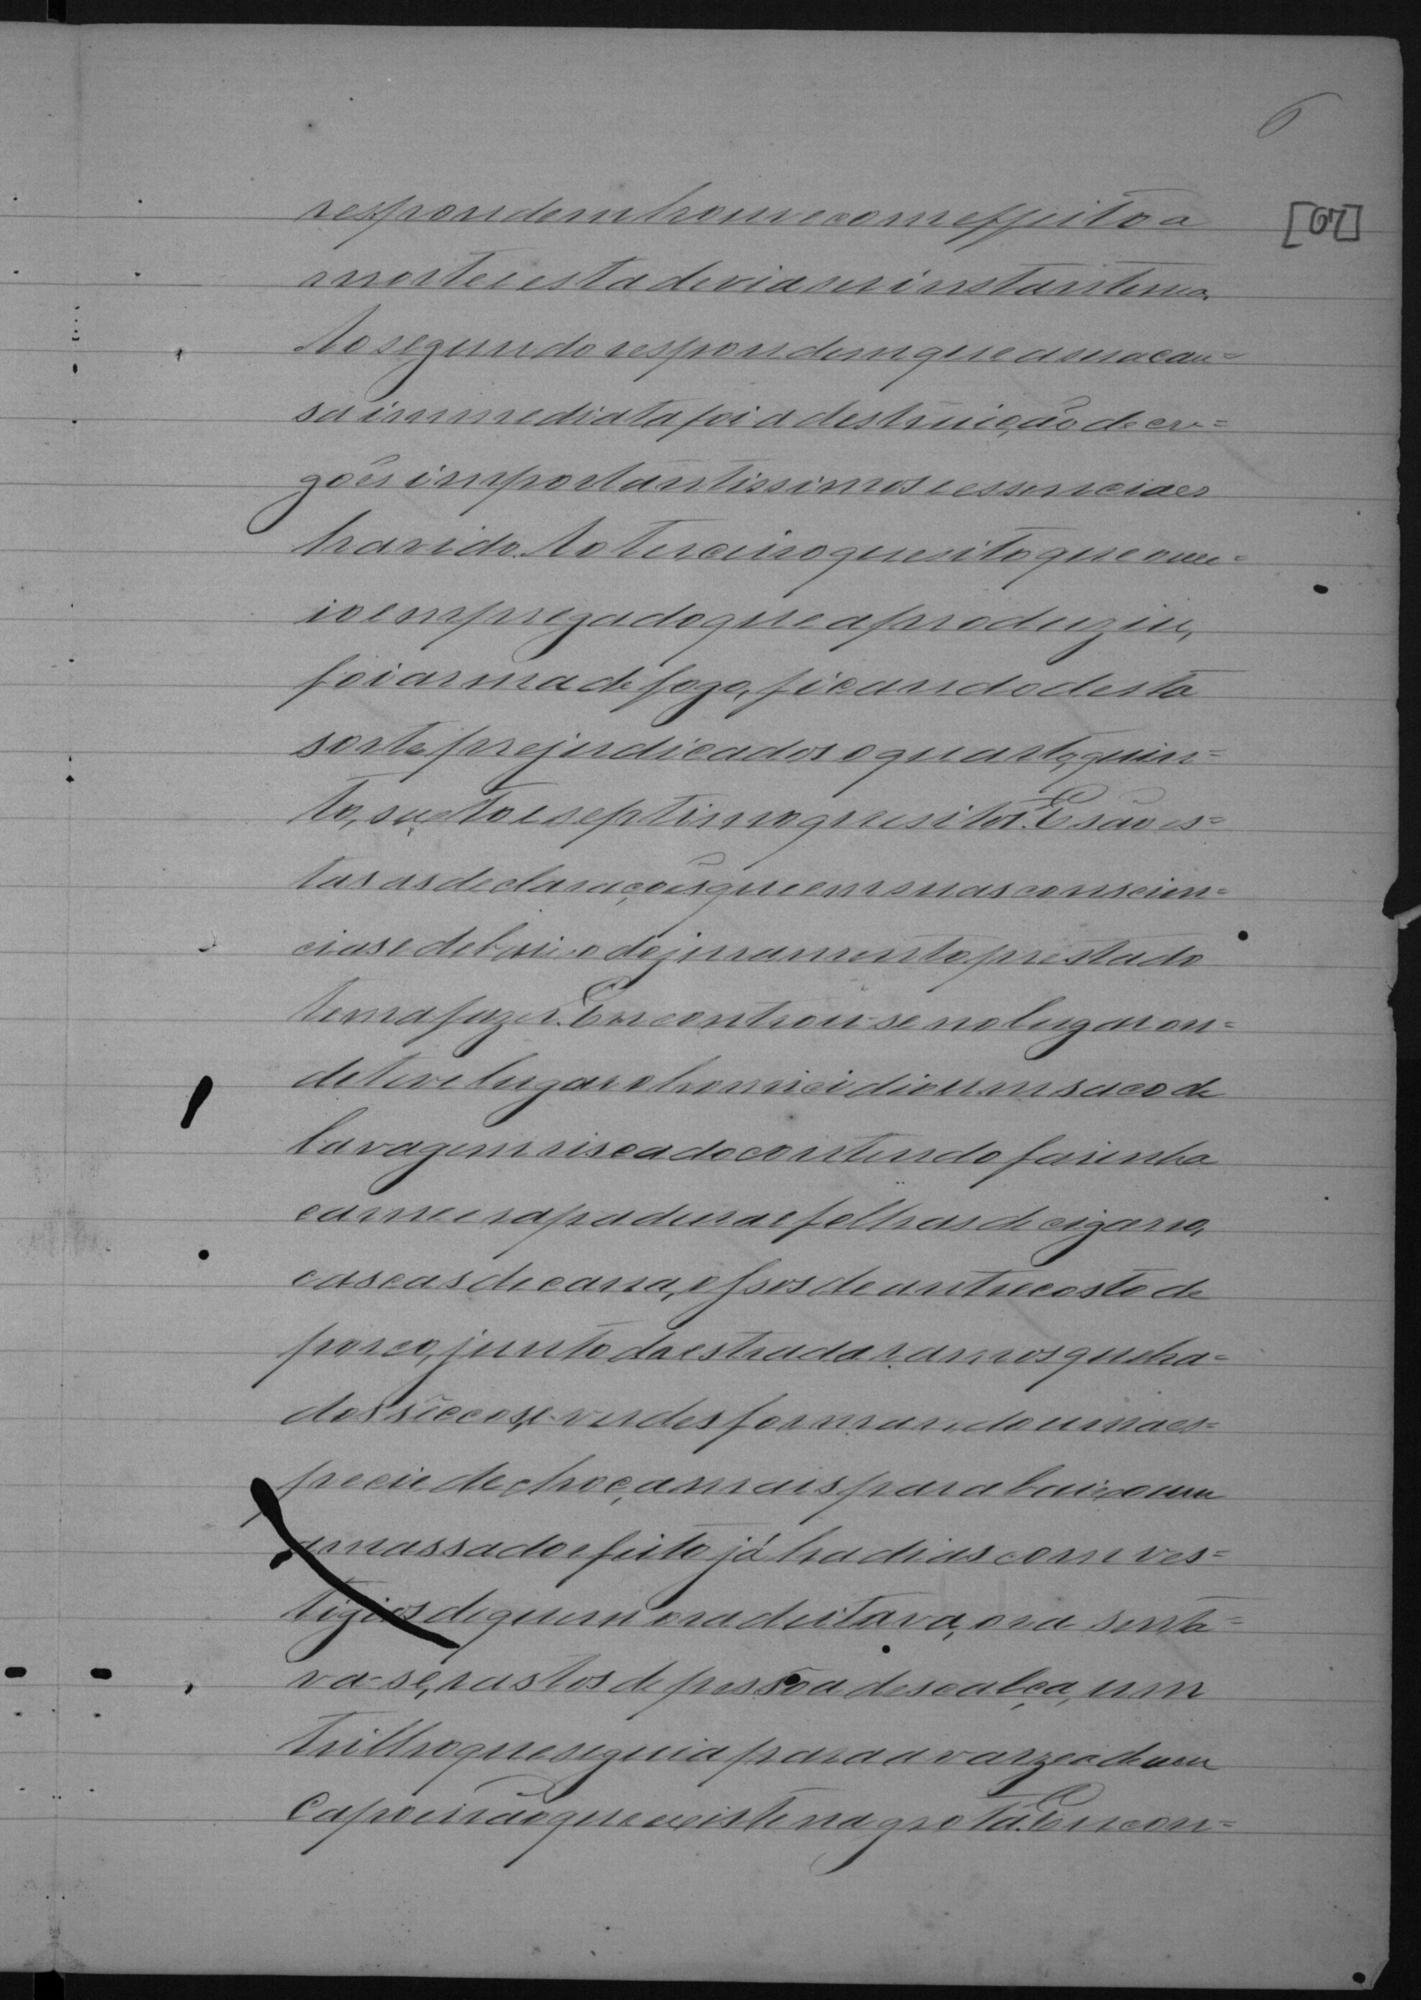 6
[07]
respondem houve com effeito a
morte e esta devia ser instantenea.
Ao segundo respondem que a sua cau=
sa immediata foi a destruição de or=
gões importantissimos e essenciaes
ha vida. Ao terceiro quesito que o me=
io empregado que a produziu,
foi arma de fogo, ficando desta
sorte prejudicados o quarto, quin=
to, sexto e septimo quesitos. E são es=
tas as declarações que em suas conscien=
cias e debaixo do juramento prestado
tem a fazer. Encontrou-se no lugar on=
de teve lugar o homicidio um saco de
lavagem riscado contendo farinha
carne e rapadura e folhas de cigarro,
cascas de cana, ossos de antrecosto de
porco, junto da estrada ramos quebra=
dos sêccos, e verdes formando uma es=
pecie de choça mais para baixo um
amassado e feito já ha dias com ves=
tigios de quem ora deitava, ora senta=
va-se, rastos de pessôa descalça, um
trilho que seguia para a varzea de um
Capoeirão que existe na grota. Encon=